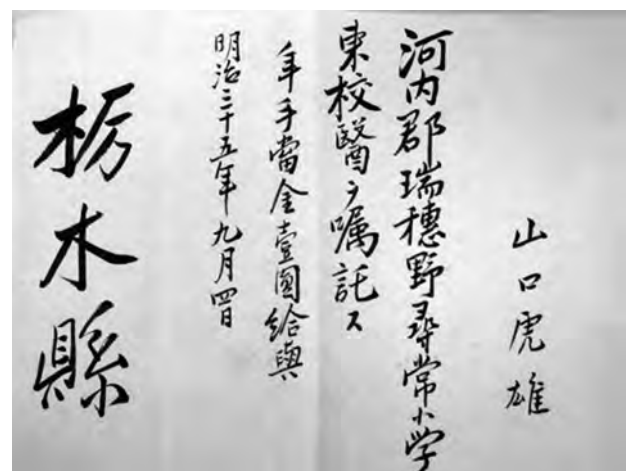 山口虎雄
河内郡瑞穗野尋常小学
東校醫ヲ嘱託ス
年手當金壹圓給與
明治三十五年九月四日
栃木縣